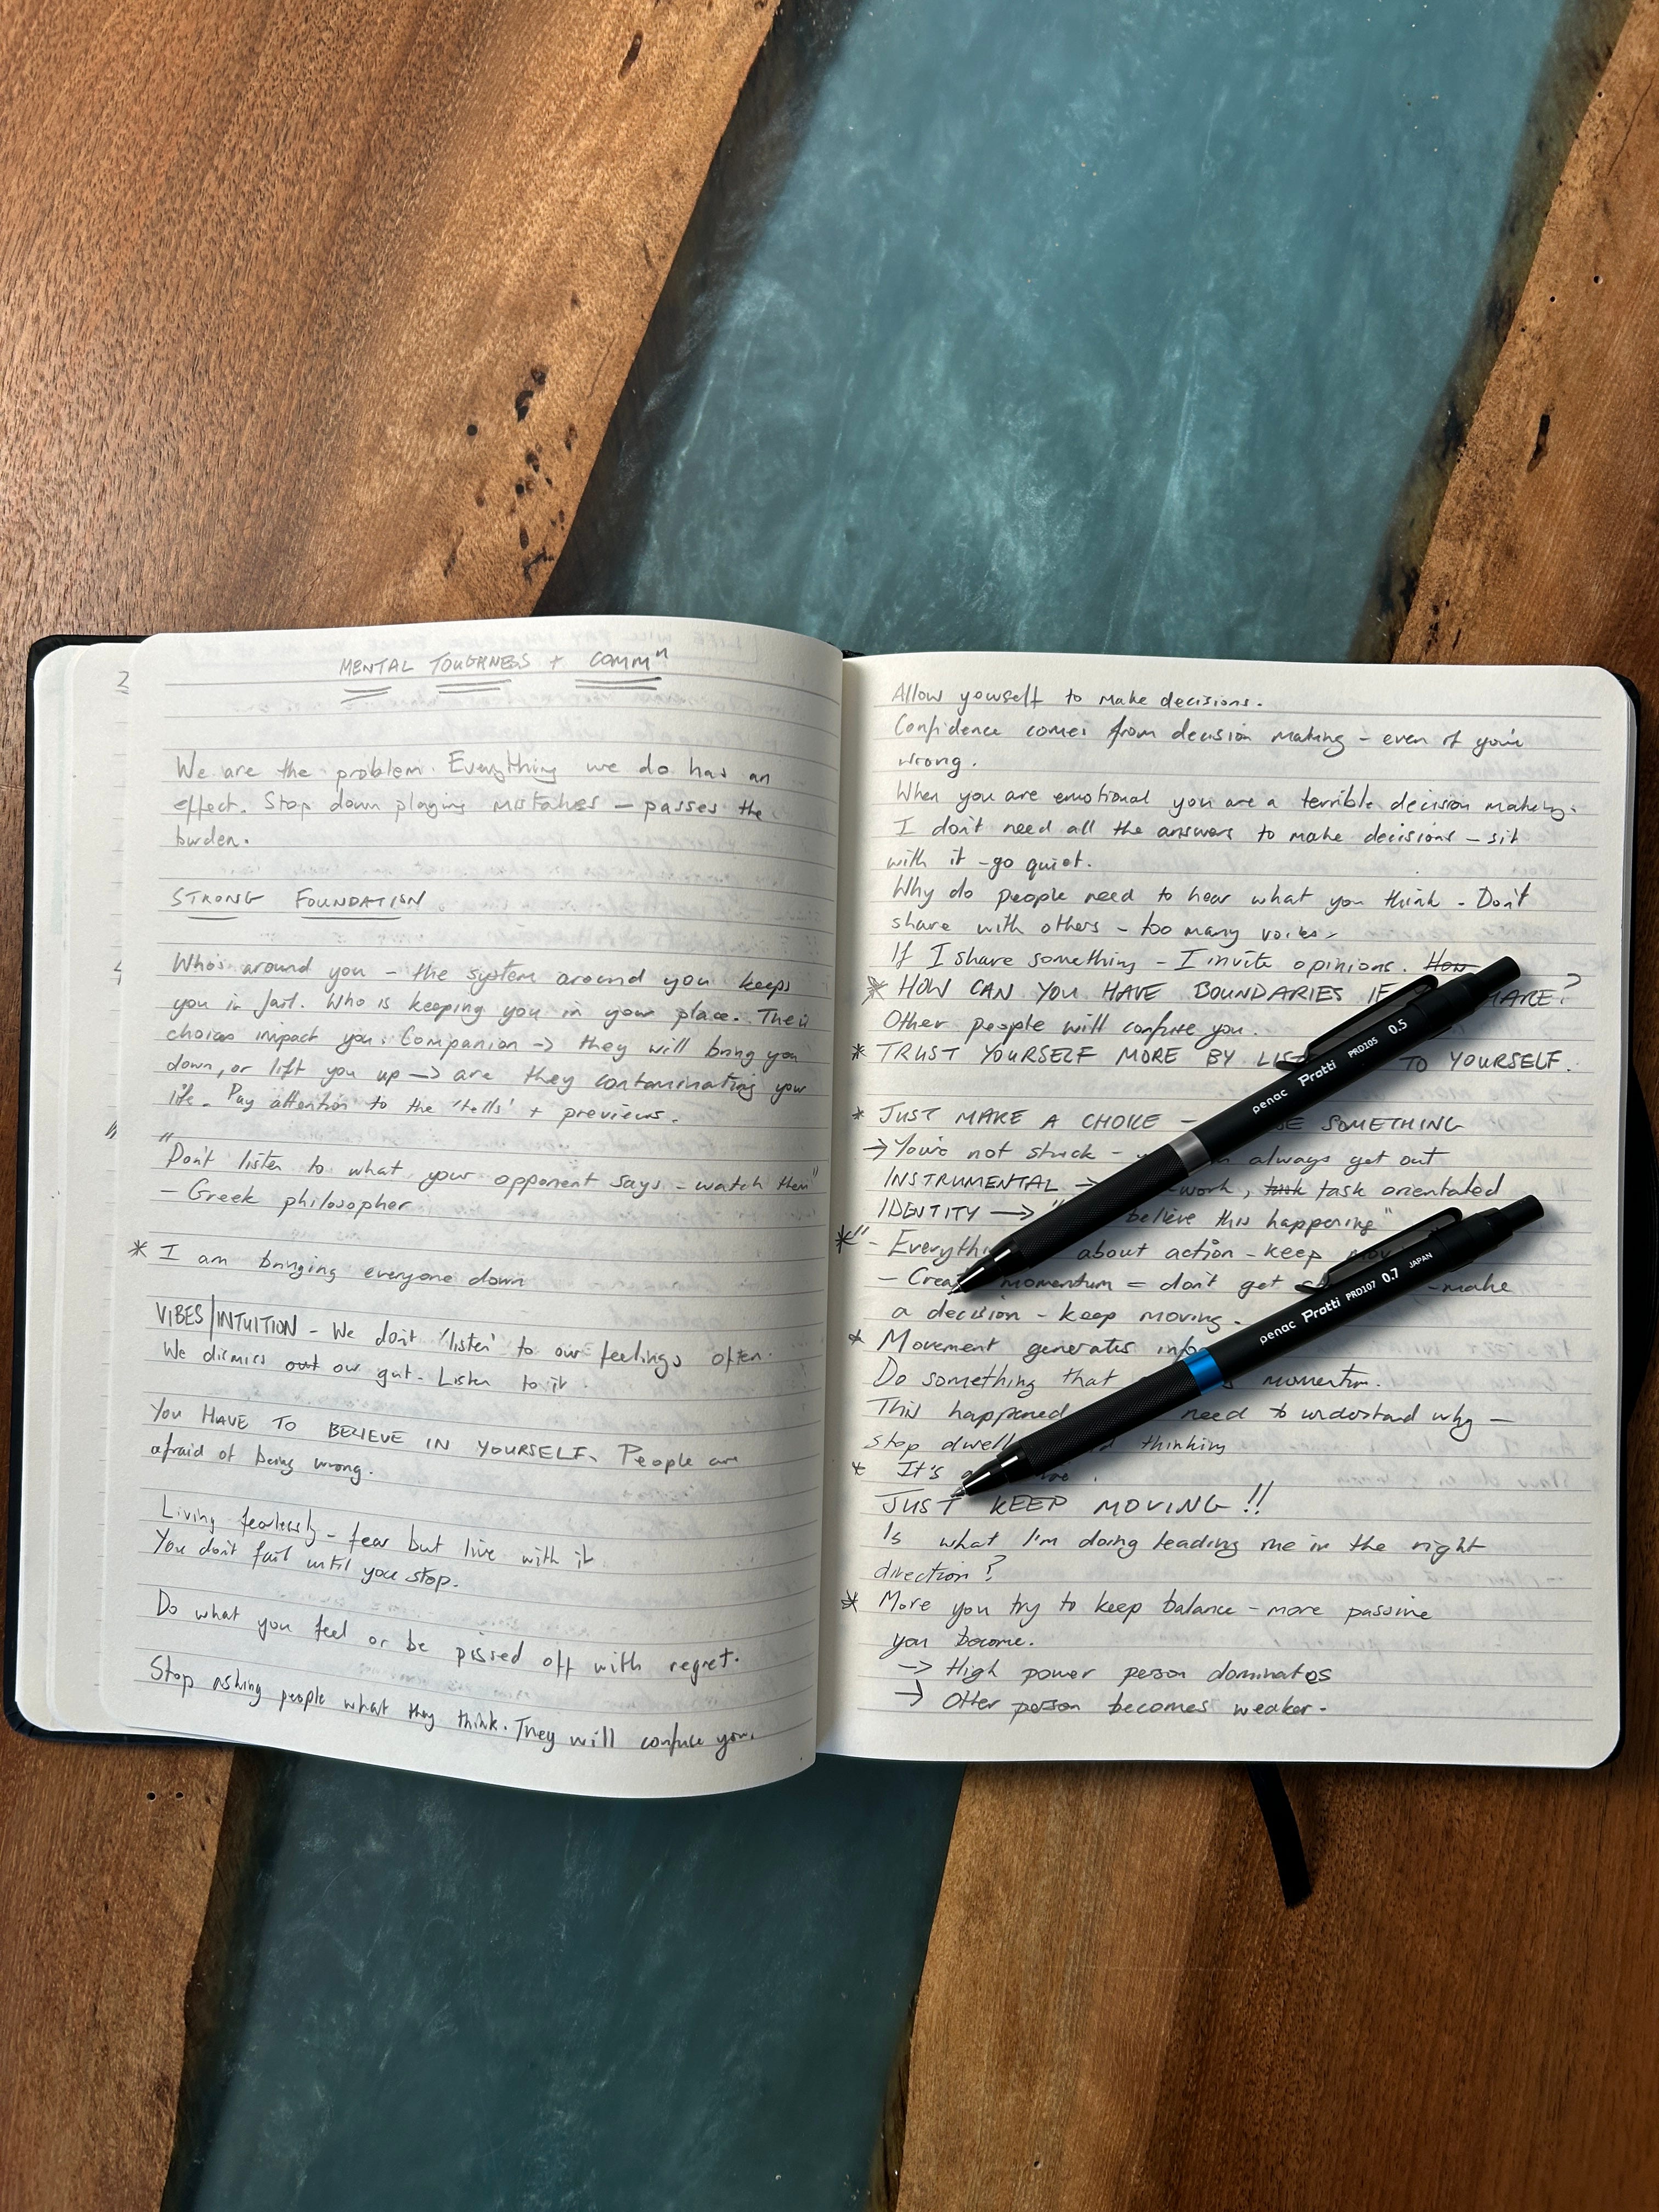 2
MENTAL TOUGHNESS + COMMⁿ
We are the problem. Everything we do has an
effect. Stop down playing mistakes – passes the
burden.
STRONG FOUNDATION
Who's around you – the system around you keeps
you in jail. Who is keeping you in your place. Their
choices impact you. Companion → they will bring you
down, or lift you up → are they contaminating your
life. Pay attention to the 'tells' + previews.
"Don't listen to what your opponent says – watch them"
– Greek philosopher
* I am bringing everyone down
VIBES/INTUITION – We don't 'listen' to our feelings often.
We dismiss out our gut. Listen to it.
YOU HAVE TO BELIEVE IN YOURSELF. People are
afraid of being wrong.
Living fearlessly – fear but live with it
You don't fail until you stop.
Do what you feel or be pissed off with regret.
Stop asking people what they think. They will confuse you.
Allow yourself to make decisions.
Confidence comes from decision making – even if you're
wrong.
When you are emotional you are a terrible decision making.
I don't need all the answers to make decisions – sit
with it – go quiet.
Why do people need to hear what you think – Don't
share with others – too many voices
If I share something – I invite opinions. How
* HOW CAN YOU HAVE BOUNDARIES IF HARE?
Other people will confuse you.
* TRUST YOURSELF MORE BY LIS TO YOURSELF.
* JUST MAKE A CHOICE – SE SOMETHING
→ You're not stuck – always get out
INSTRUMENTAL → work, task task orientated
IDENTITY → " believe this happening"
*" – Everythi about action – keep mov
– Crea momentum = don't get – make
a decision – keep moving.
* Movement generates info
Do something that momentum.
This happened need to understand why –
stop dwell thinking
* It's
JUST KEEP MOVING!!
Is what I'm doing leading me in the right
direction?
* More you try to keep balance – more passive
you become.
→ High power person dominates
→ Other person becomes weaker.
penac Protti PRD105 0.5
penac Protti PRD107 0.7 JAPAN